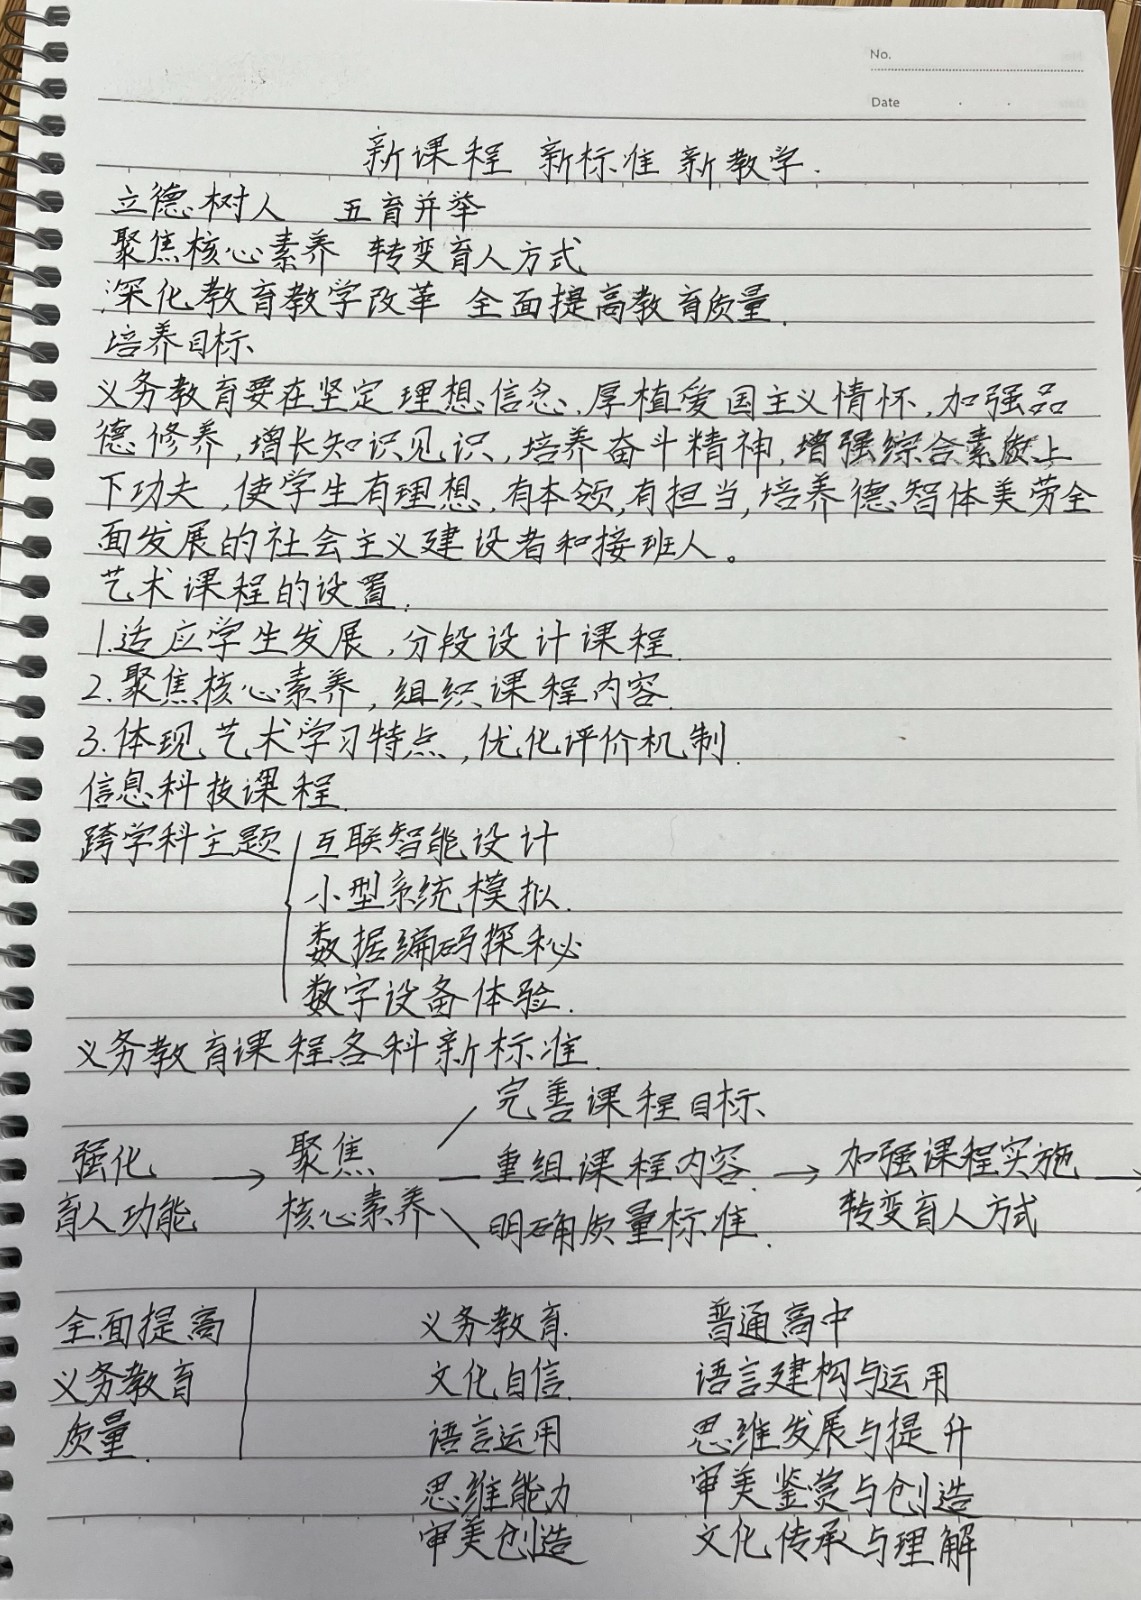 No.
Date
新课程 新标准 新教学.
立德树人 五育并举
聚焦核心素养 转变育人方式
深化教育教学改革 全面提高教育质量.
培养目标
义务教育要在坚定理想信念,厚植爱国主义情怀,加强品
德修养,增长知识见识,培养奋斗精神,增强综合素质上
下功夫,使学生有理想,有本领,有担当,培养德智体美劳全
面发展的社会主义建设者和接班人。
艺术课程的设置.
1.适应学生发展,分段设计课程.
2.聚焦核心素养,组织课程内容.
3.体现艺术学习特点,优化评价机制.
信息科技课程.
跨学科主题 互联智能设计
小型系统模拟.
数据编码探秘
数字设备体验.
义务教育课程各科新标准.
完善课程目标
强化 → 聚焦 重组课程内容. → 加强课程实施 →
育人功能 核心素养 明确质量标准. 转变育人方式
全面提高 义务教育. 普通高中
义务教育 文化自信. 语言建构与运用
质量. 语言运用 思维发展与提升
思维能力 审美鉴赏与创造
审美创造 文化传承与理解